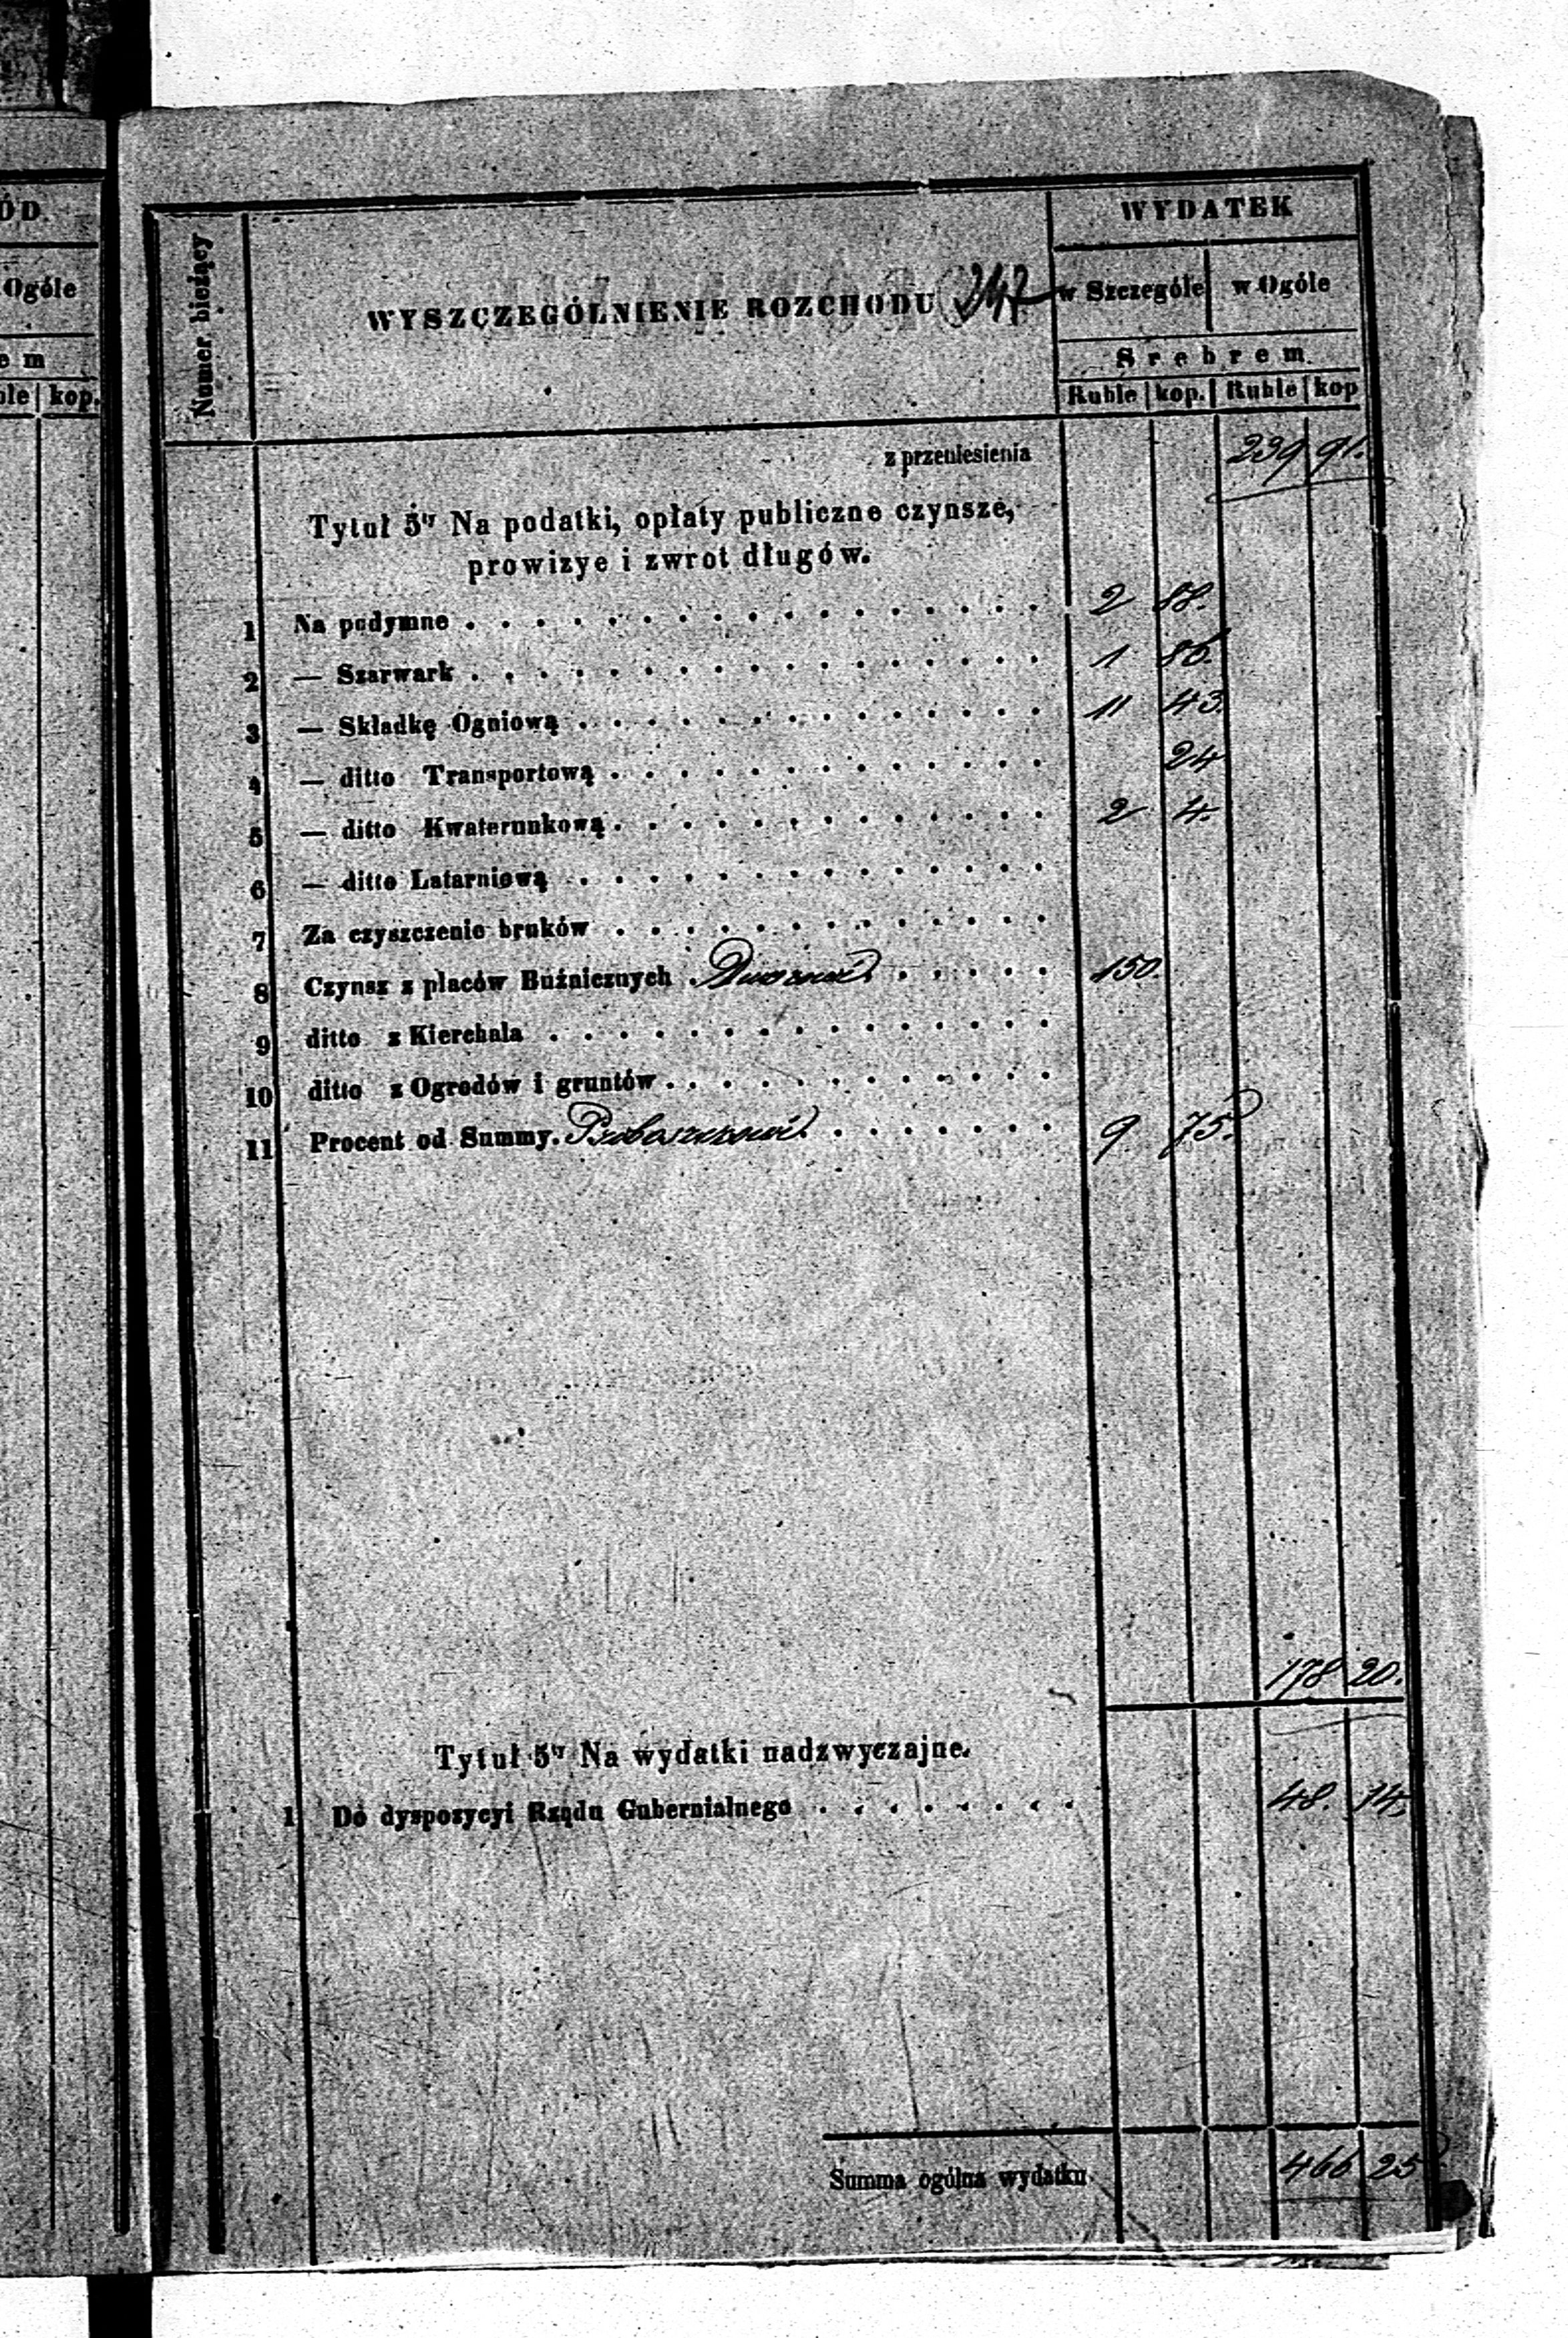 ÓD.
Ogóle
e m
ble kop.
Numer bieżący
WYSZCZEGÓLNIENIE ROZCHODU 247
WYDATEK
w Szczególe w Ogóle
Srebrem
Ruble kop. Ruble kop
z przeniesienia 239 91.
Tytuł 5ty Na podatki, opłaty publiczne czynsze,
prowizye i zwrot długów.
1 Na podymne . . . . . . . . . . . . . . . . . 2 88.
2 — Szarwark . . . . . . . . . . . . . . . . . 1 86.
3 — Składkę Ogniową . . . . . . . . . . . . . . 11 43.
4 — ditto Transportową . . . . . . . . . . . . . 24
5 — ditto Kwaterunkową . . . . . . . . . . . . . 2 4.
6 — ditto Latarniową . . . . . . . . . . . . . .
7 Za czyszczenie bruków . . . . . . . . . . . . .
8 Czynsz z placów Buźnicznych . . . . . . 150.
9 ditto z Kierchala . . . . . . . . . . . . . . .
10 ditto z Ogrodów i gruntów . . . . . . . . . . . .
11 Procent od Summy. Proboszczowi . . . . . . . 9 75.
178 20.
Tytuł 5ty Na wydatki nadzwyczajne.
1 Do dyspozycyi Rządu Gubernialnego . . . . . . . . 48. 14.
Summa ogólna wydatku 466 25